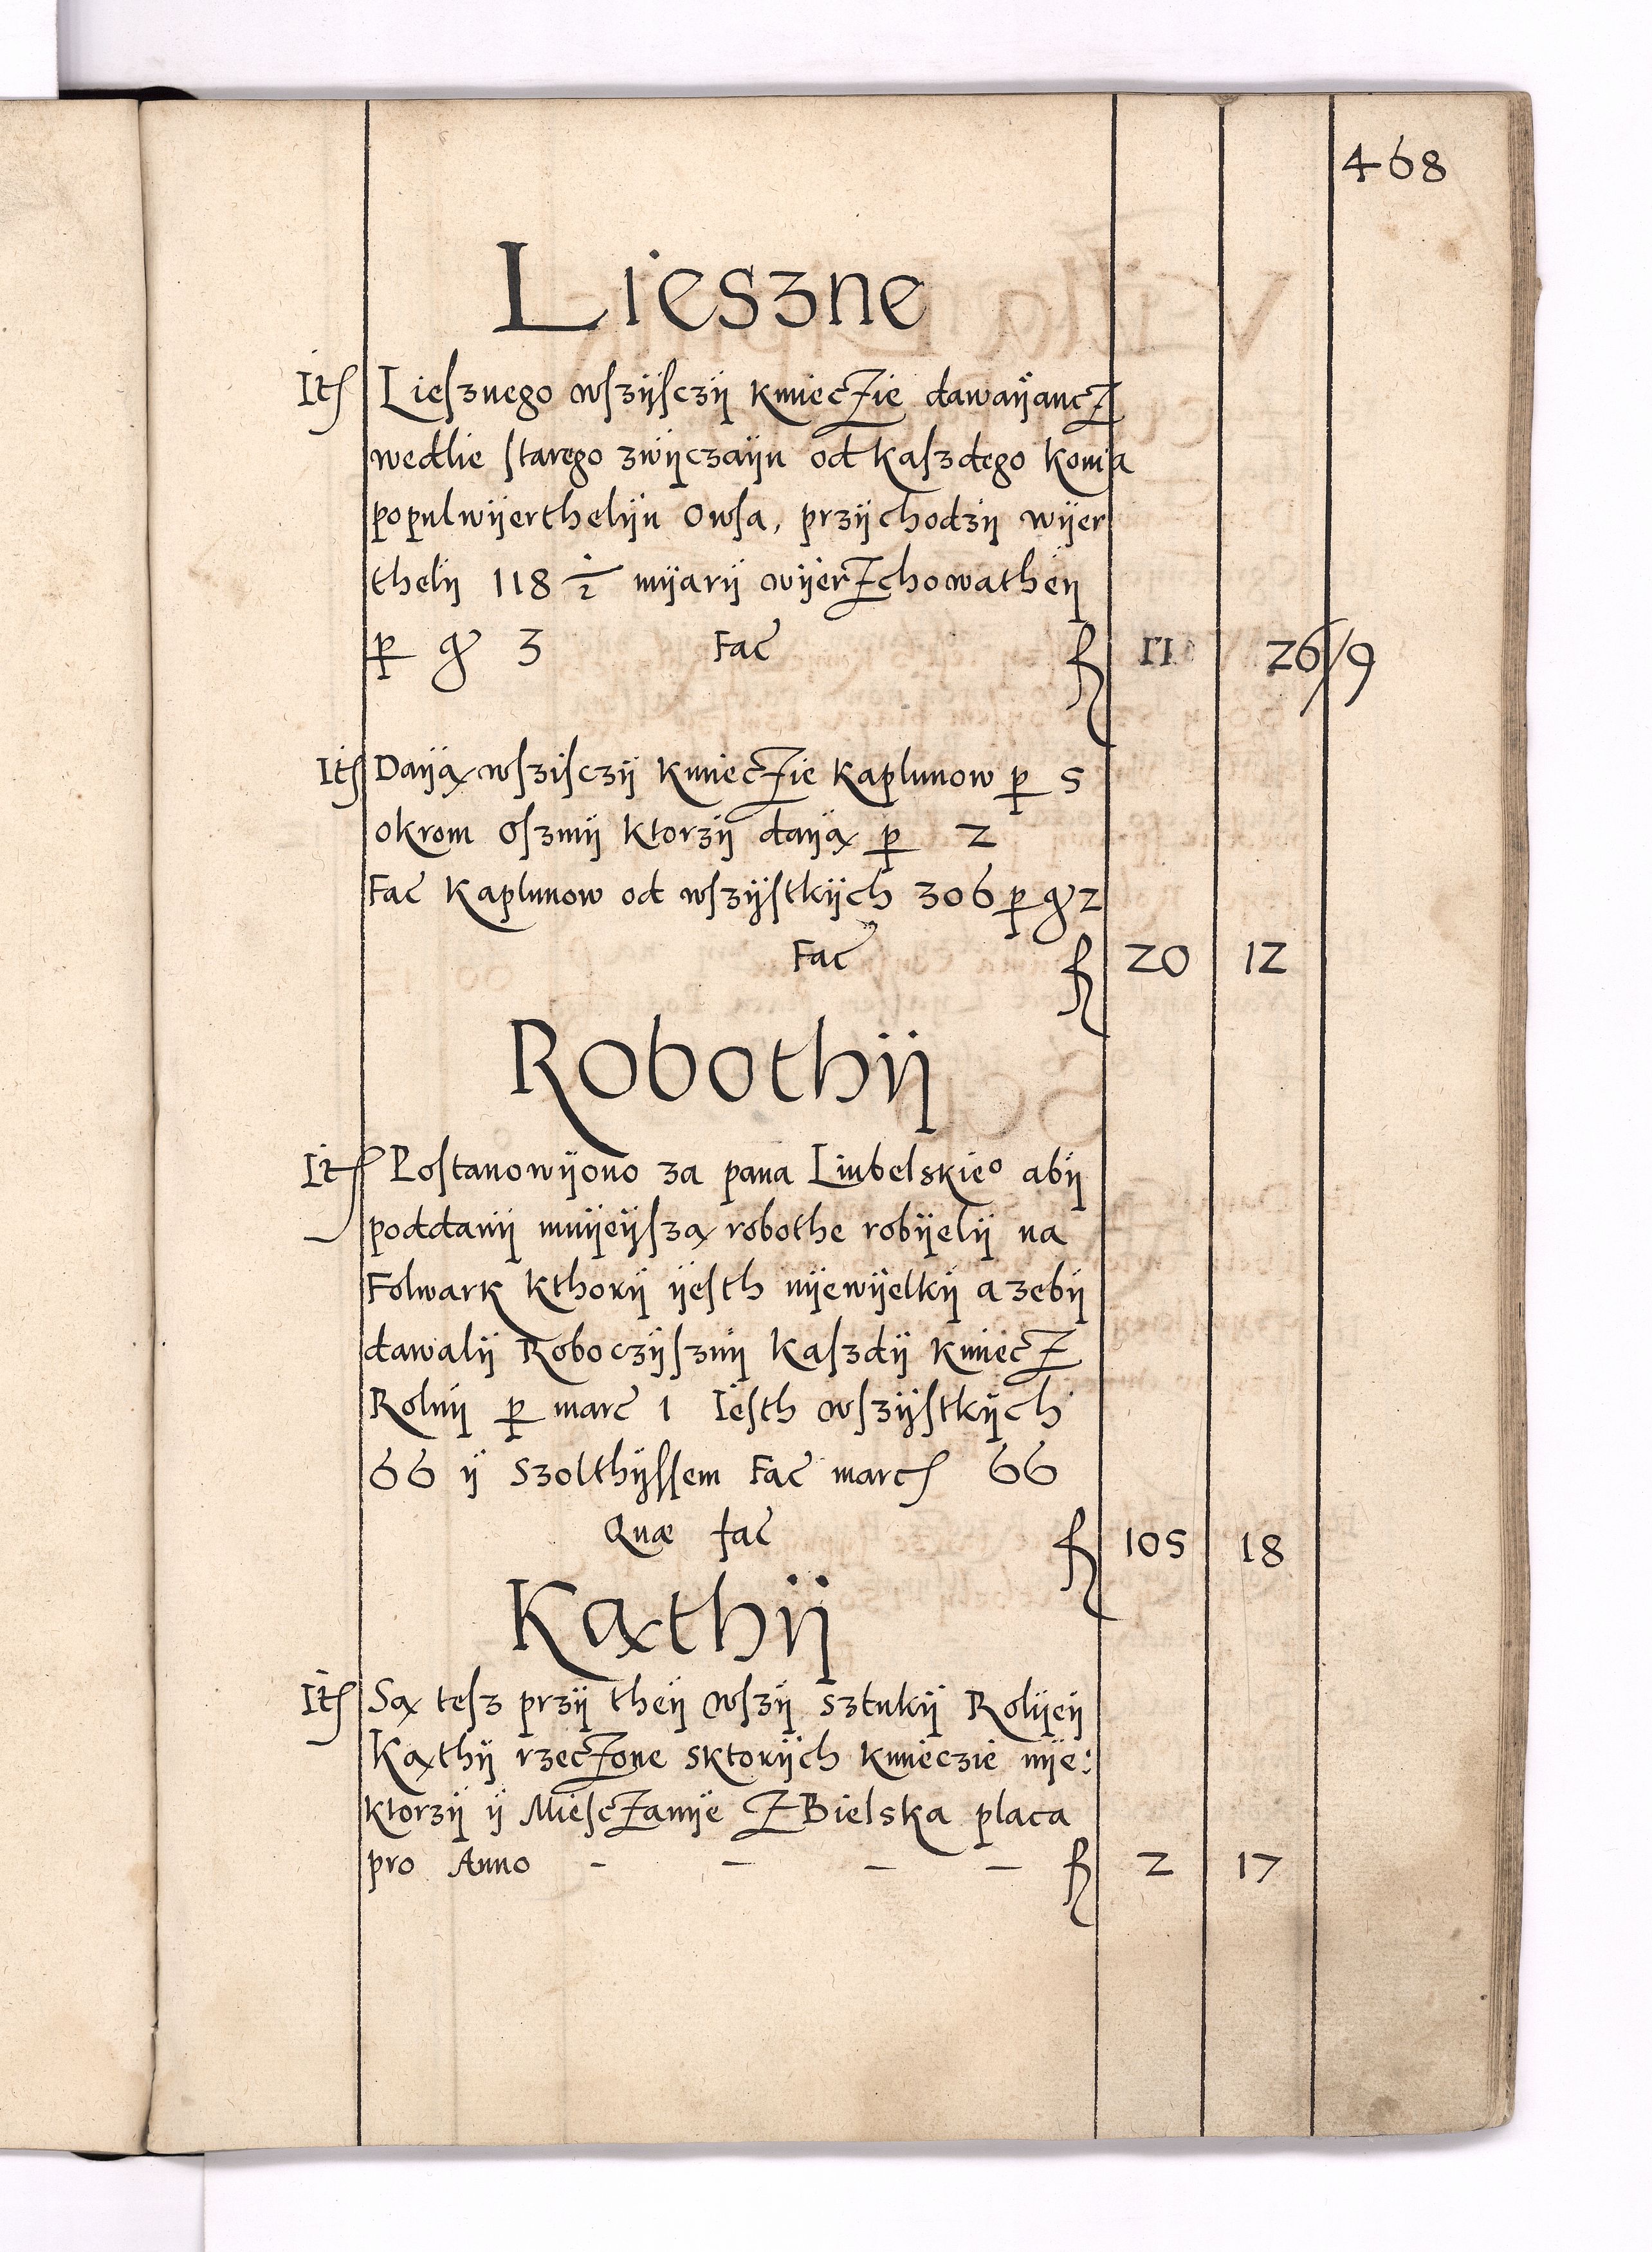 468
Lieszne
It Lieſznego wſzÿſczÿ kmieczie dawaÿancz
wedlie ſtarego zwÿczaÿu od kaſzdego konia
populwÿerthelÿu Owſa, przÿchodzÿ wÿer
thelÿ 118 1/2 mÿarÿ wÿerzchowatheÿ
p gr 3 Fac fl 11 26/9
It Daÿą wſziſczÿ kmieczie kaplunow p 5
okrom Oſzmÿ ktorzÿ daÿą p 2
Fac kaplunow od wſzÿſtkÿch 306 p gr 2
Fac fl 20 12
Robothÿ
It Poſtanowÿono za pana Liubelskieo abÿ
poddanÿ mnÿeÿſzą robothe robÿelÿ na
Folwark kthorÿ ÿeſth nÿewÿelkÿ a zebÿ
dawalÿ Roboczÿſznÿ kaſzdÿ kmiecz
Rolnÿ p marc 1 Ieſth wſzÿſtkÿch
66 ÿ szolthÿſſem Fac marc 66
Quæ fac fl 105 18
Kąthÿ
It Są teſz przÿ theÿ wſzÿ sztukÿ Rolÿeÿ
Kąthÿ rzeczone sktorÿch kmieczie nÿe:
ktorzÿ ÿ Mieſczanÿe z Bielska placa
pro Anno - - - - fl 2 17